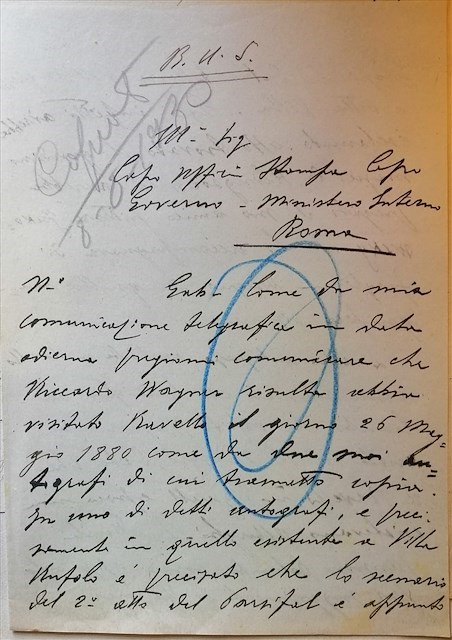 B. U. S.
Copiato
Ill.º Sig
Capo Uffizio Stampa Capo
Governo - Ministero Interno
Roma
N.º Come da mia
comunicazione telegrafica in data
odierna pregiomi comunicare che
Riccardo Wagner risulta abbia
visitato Ravello il giorno 26 Mag=
gio 1880 come da due suoi au=
tografi di cui trasmetto copia.
In uno di detti autografi, e preci-
samente in quello esistente a Villa
Rufolo è precisato che lo scenario
del 2º atto del Parsifal è appunto